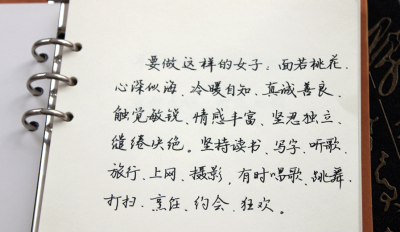 要做这样的女子：面若桃花、
心深似海、冷暖自知、真诚善良、
触觉敏锐、情感丰富、坚忍独立、
缱绻决绝。坚持读书、写字、听歌、
旅行、上网、摄影，有时唱歌、跳舞、
打扫、烹饪、约会、狂欢。